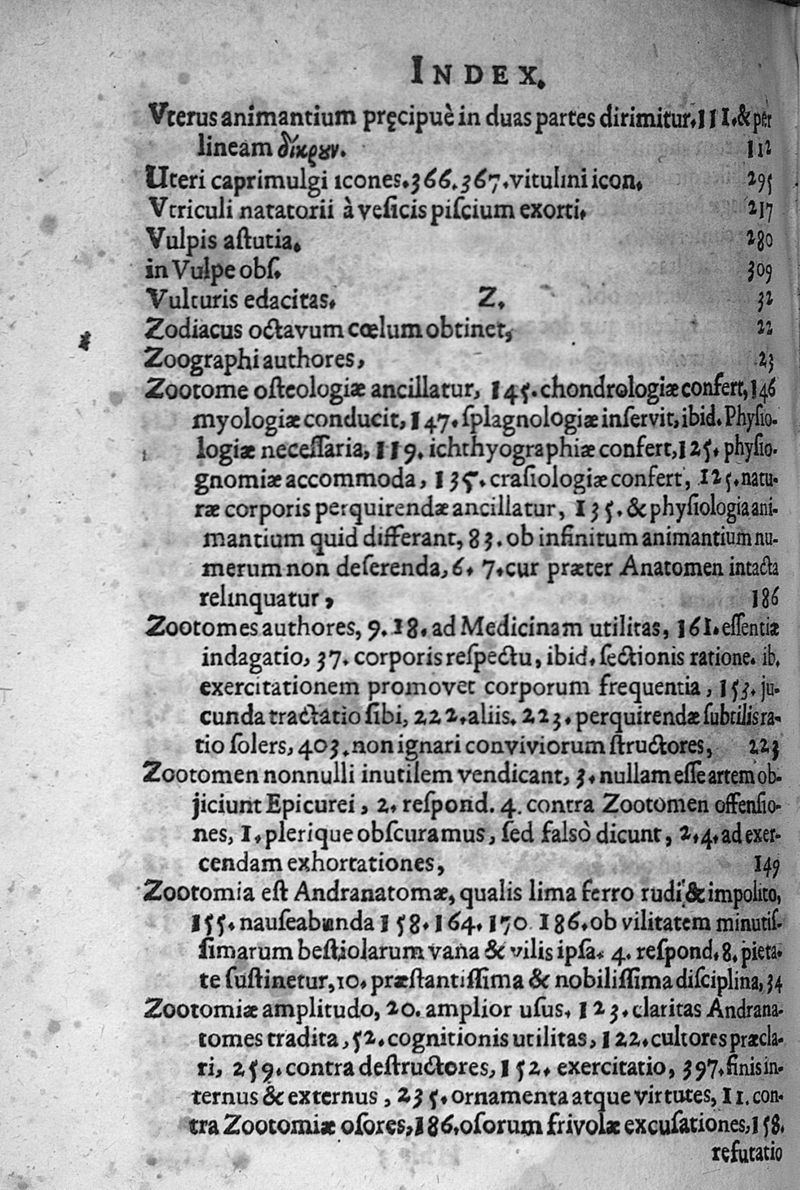 INDEX.
Vterus animantium pręcipuè in duas partes dirimitur. 111. & per
lineam δίκρȣν. 112
Uteri caprimulgi icones. 366. 367. vitulini icon. 295
Vtriculi natatorii à veſicis piſcium exorti. 217
Vulpis aſtutia. 280
in Vulpe obſ. 309
Vulturis edacitas. 32
Z.
Zodiacus octavum cœlum obtinet, 22
Zoographi authores, 23
Zootome oſteologiæ ancillatur, 145. chondrologiæ confert, 146
myologiæ conducit, 147. ſplagnologiæ inſervit, ibid. Phyſio-
logiæ neceſſaria, 119. ichthyographiæ confert, 125. phyſio-
gnomiæ accommoda, 135. craſiologiæ confert, 125. natu-
ræ corporis perquirendæ ancillatur, 135. & phyſiologia ani-
mantium quid differant, 83. ob infinitum animantium nu-
merum non deſerenda, 6. 7. cur præter Anatomen intacta
relinquatur, 186
Zootomes authores, 9. 18. ad Medicinam utilitas, 161. eſſentiæ
indagatio, 37. corporis reſpectu, ibid. ſectionis ratione. ib.
exercitationem promovet corporum frequentia, 153. ju-
cunda tractatio ſibi, 222. aliis. 223. perquirendæ ſubtilis ra-
tio ſolers, 403. non ignari conviviorum ſtructores, 223
Zootomen nonnulli inutilem vendicant, 3. nullam eſſe artem ob-
jiciunt Epicurei, 2. reſpond. 4. contra Zootomen offenſio-
nes, 1. plerique obſcuramus, ſed falsò dicunt, 2. 4. ad exer-
cendam exhortationes, 149
Zootomia eſt Andranatomæ, qualis lima ferro rudi, & impolito,
155. nauſeabunda 158. 164. 170 186. ob vilitatem minutiſ-
ſimarum beſtiolarum vana & vilis ipſa. 4. reſpond. 8. pieta-
te ſuſtinetur, 10. præſtantiſſima & nobiliſſima diſciplina, 34
Zootomiæ amplitudo, 20. amplior uſus, 123. claritas Andrana-
tomes tradita, 52. cognitionis utilitas, 122. cultores præcla-
ri, 259. contra deſtructores, 152. exercitatio, 397. finis in-
ternus & externus, 235. ornamenta atque virtutes, 11. con-
tra Zootomiæ oſores, 186. oſorum frivolæ excuſationes, 158.
refutatio